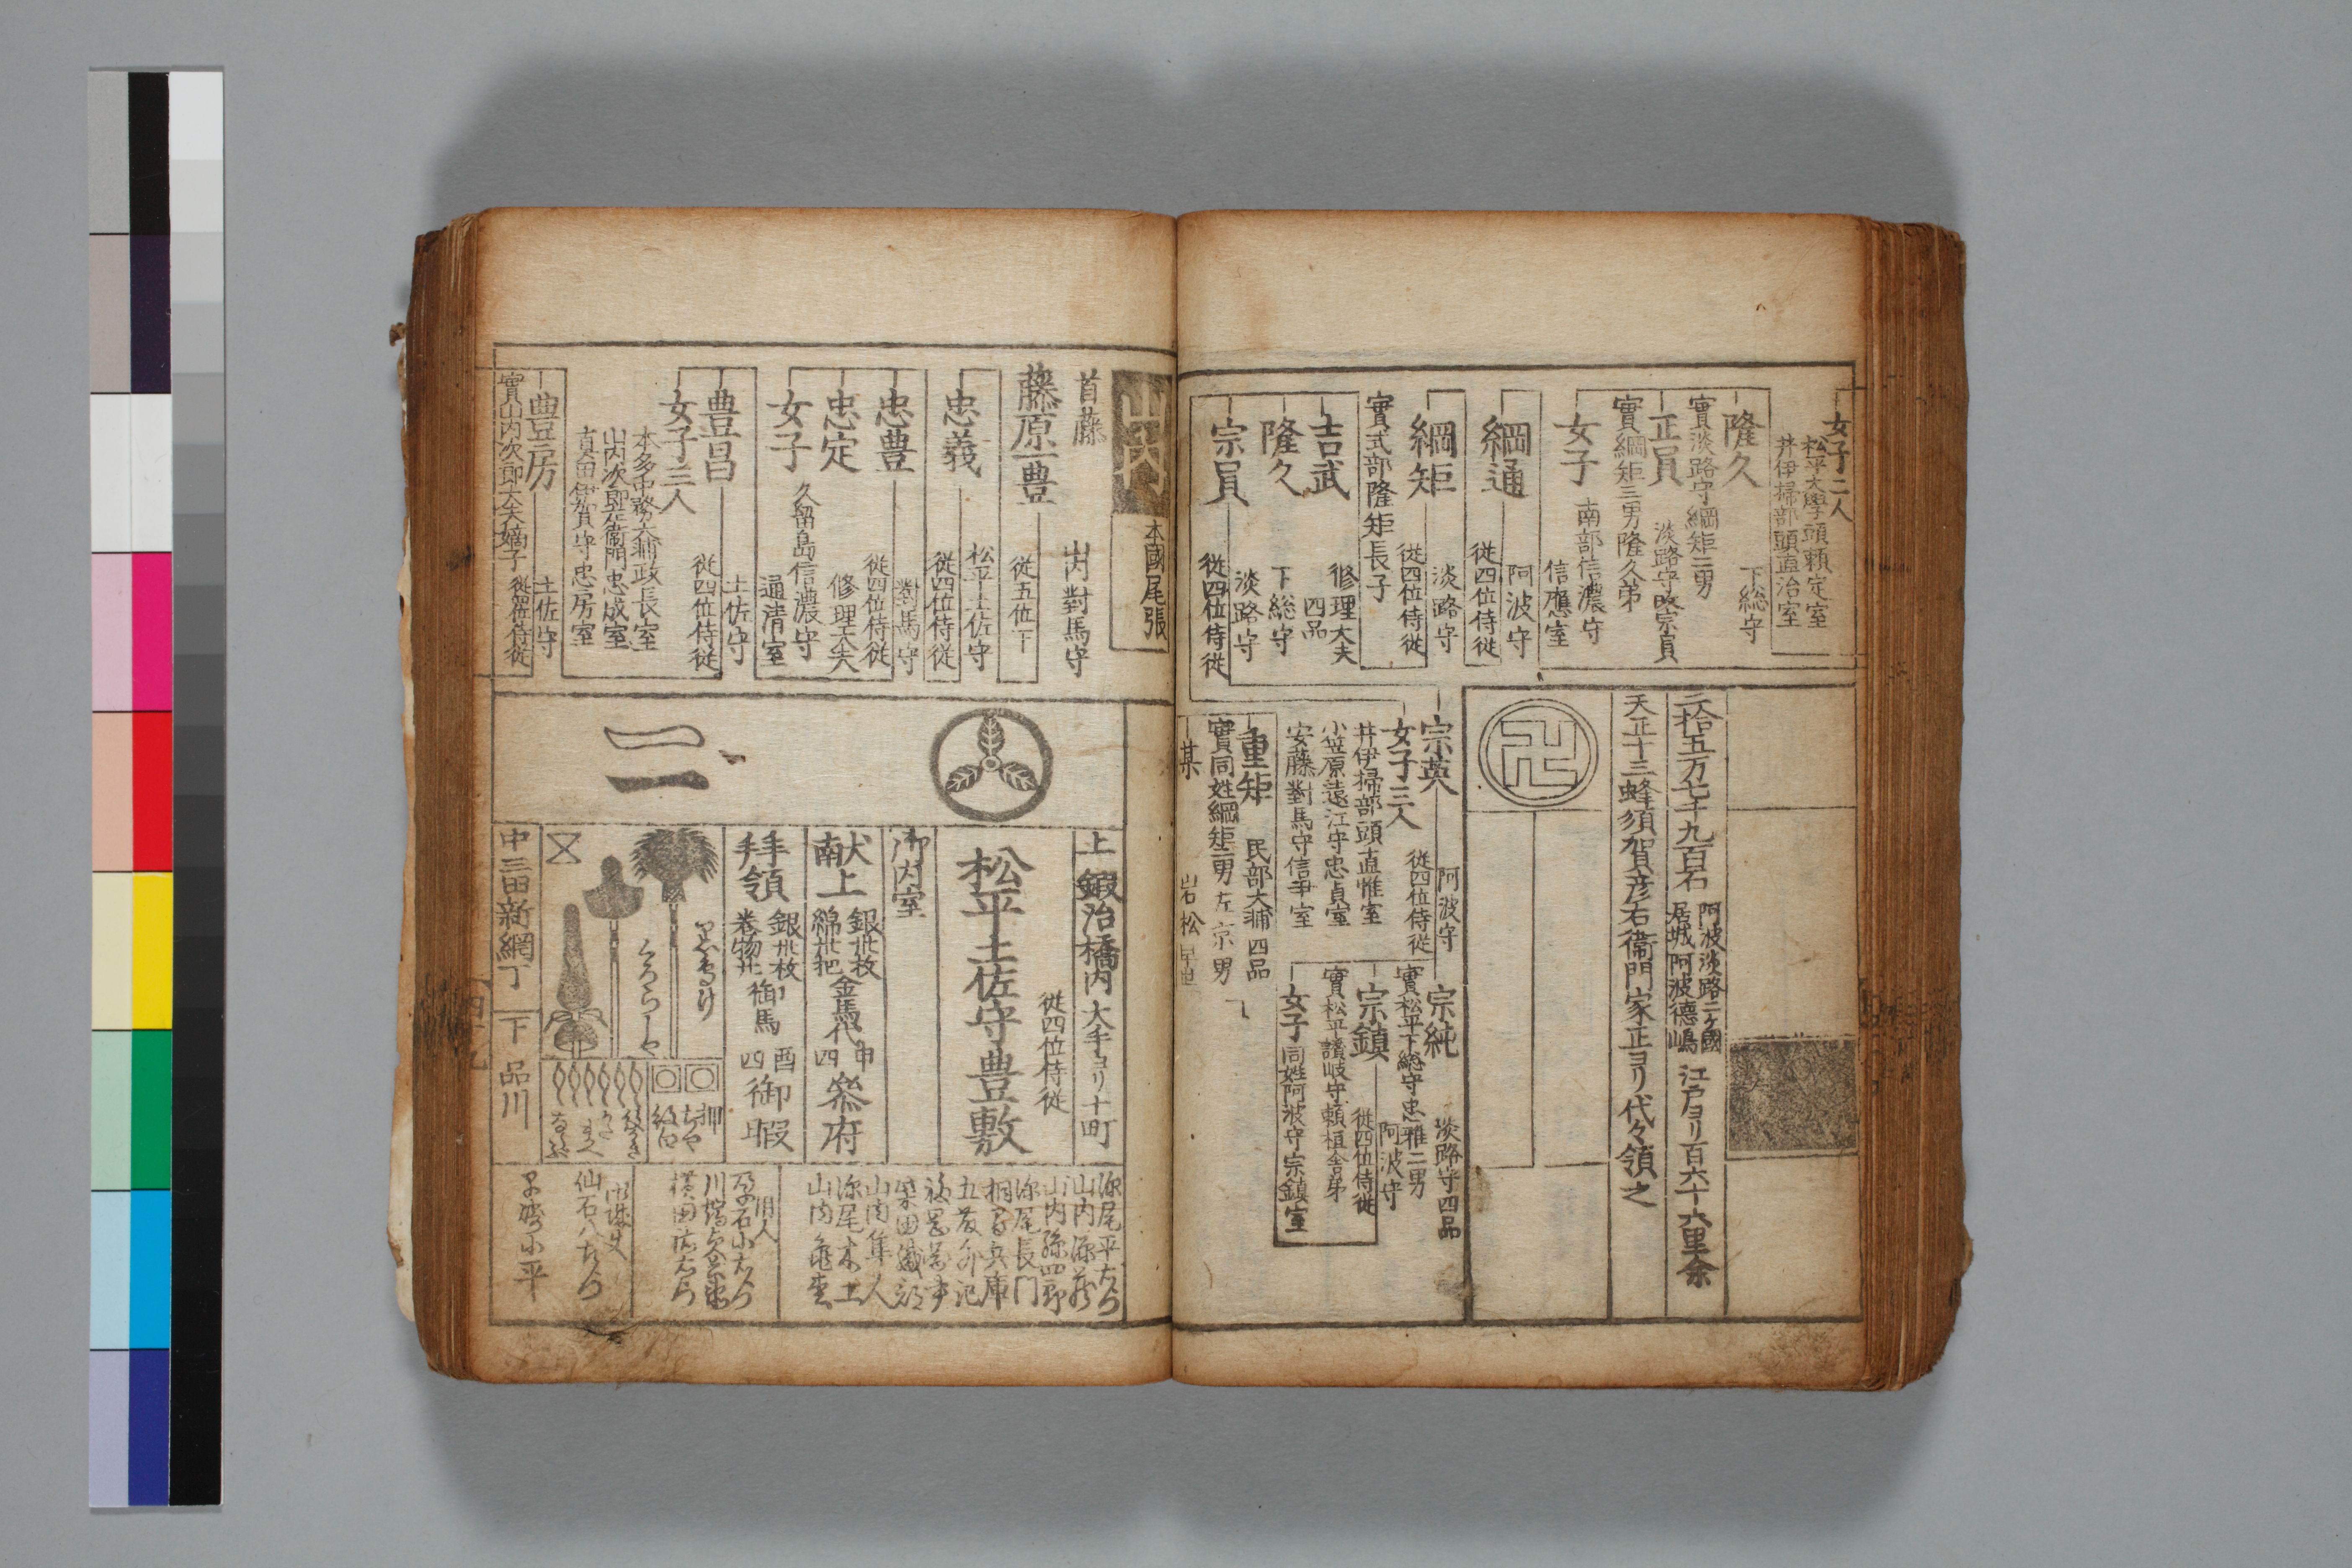 女子二人
松平大學頭頼定室
井伊掃部頭直治室
隆久
下総守
實淡路守綱矩二男
正員
淡路守改宗員
實綱矩三男隆久弟
女子
南部信濃守
信應室
綱通
阿波守
従四位侍従
綱矩
淡路守
従四位侍従
實式部隆矩長子
吉武
修理大夫
四品
隆久
下総守
宗員
淡路守
従四位侍従
二拾五万七千九百石
阿波淡路二ケ國
居城阿波徳嶋
江戸ヨリ百六十六里余
天正十三蜂須賀彦右衞門家正ヨリ代々領之
卍
宗英
阿波守
従四位侍従
女子三人
井伊掃部頭直惟室
小笠原遠江守忠貞室
安藤對馬守信尹室
重矩
民部大輔
四品
實同姓綱矩二男左京男
某
岩松
早世
宗純
淡路守四品
實松平下総守忠雅二男
宗鎮
阿波守
従四位侍従
實松平讃岐守頼桓舎弟
女子
同姓阿波守宗鎮室
山内
本國尾張
首藤
山内對馬守
藤原一豊
従五位下
忠義
松平土佐守
従四位侍従
忠豊
對馬守
従四位侍従
忠定
修理大夫
女子
久留島信濃守
通清室
豊昌
土佐守
従四位侍従
女子三人
本多中務大輔政長室
山内次郎左衞門忠成室
真田伊賀守忠房室
豊房
土佐守
従四位侍従
實山内次郎大夫嫡子
二
上
鍜治橋内
大手ヨリ十町
従四位侍従
松平土佐守豊敷
御内室
献上
銀卅枚
綿卅把
金馬代
申
四
参府
拝領
銀卅枚
巻物卅
御馬
酉
四
御暇
押
中三田新網丁
下
品川
深尾平左衛門
山内源蔵
山内孫四郎
深尾長門
桐間兵庫
五藤外記
柴田織部
山内隼人
深尾木工
山内
用人
孕石小右衛門
仙石八左衛門
小平